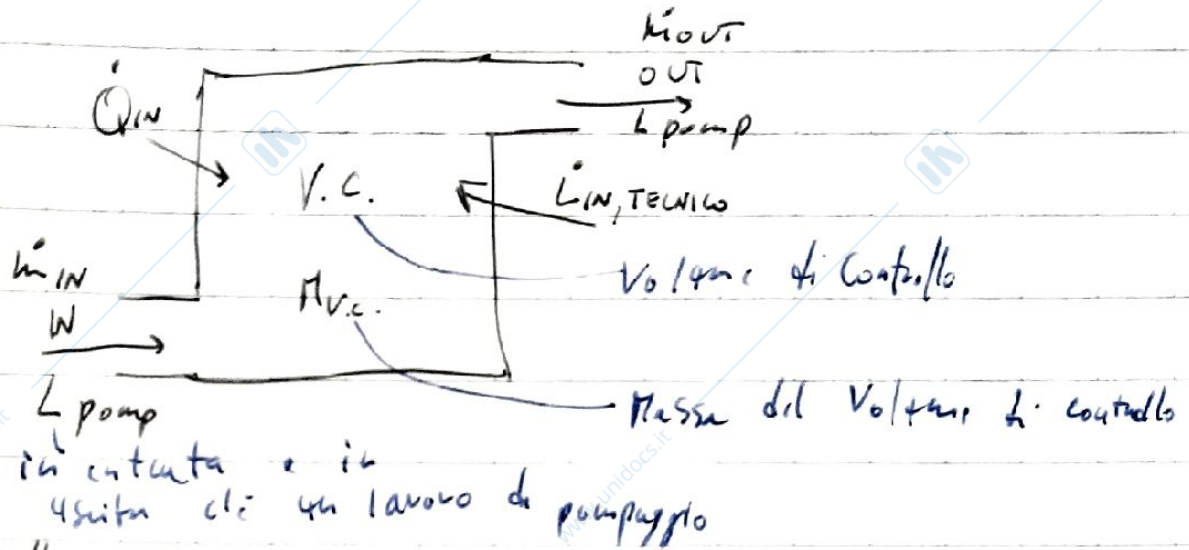 ṁOUT
OUT
Q̇IN
L pump
V.C.
L̇IN, TECNICO
ṁIN
Volume di Controllo
MV.C.
IN
L pomp
Massa del Volume di controllo
in entrata e in
uscita c'è un lavoro di pompaggio
www.unidocs.it